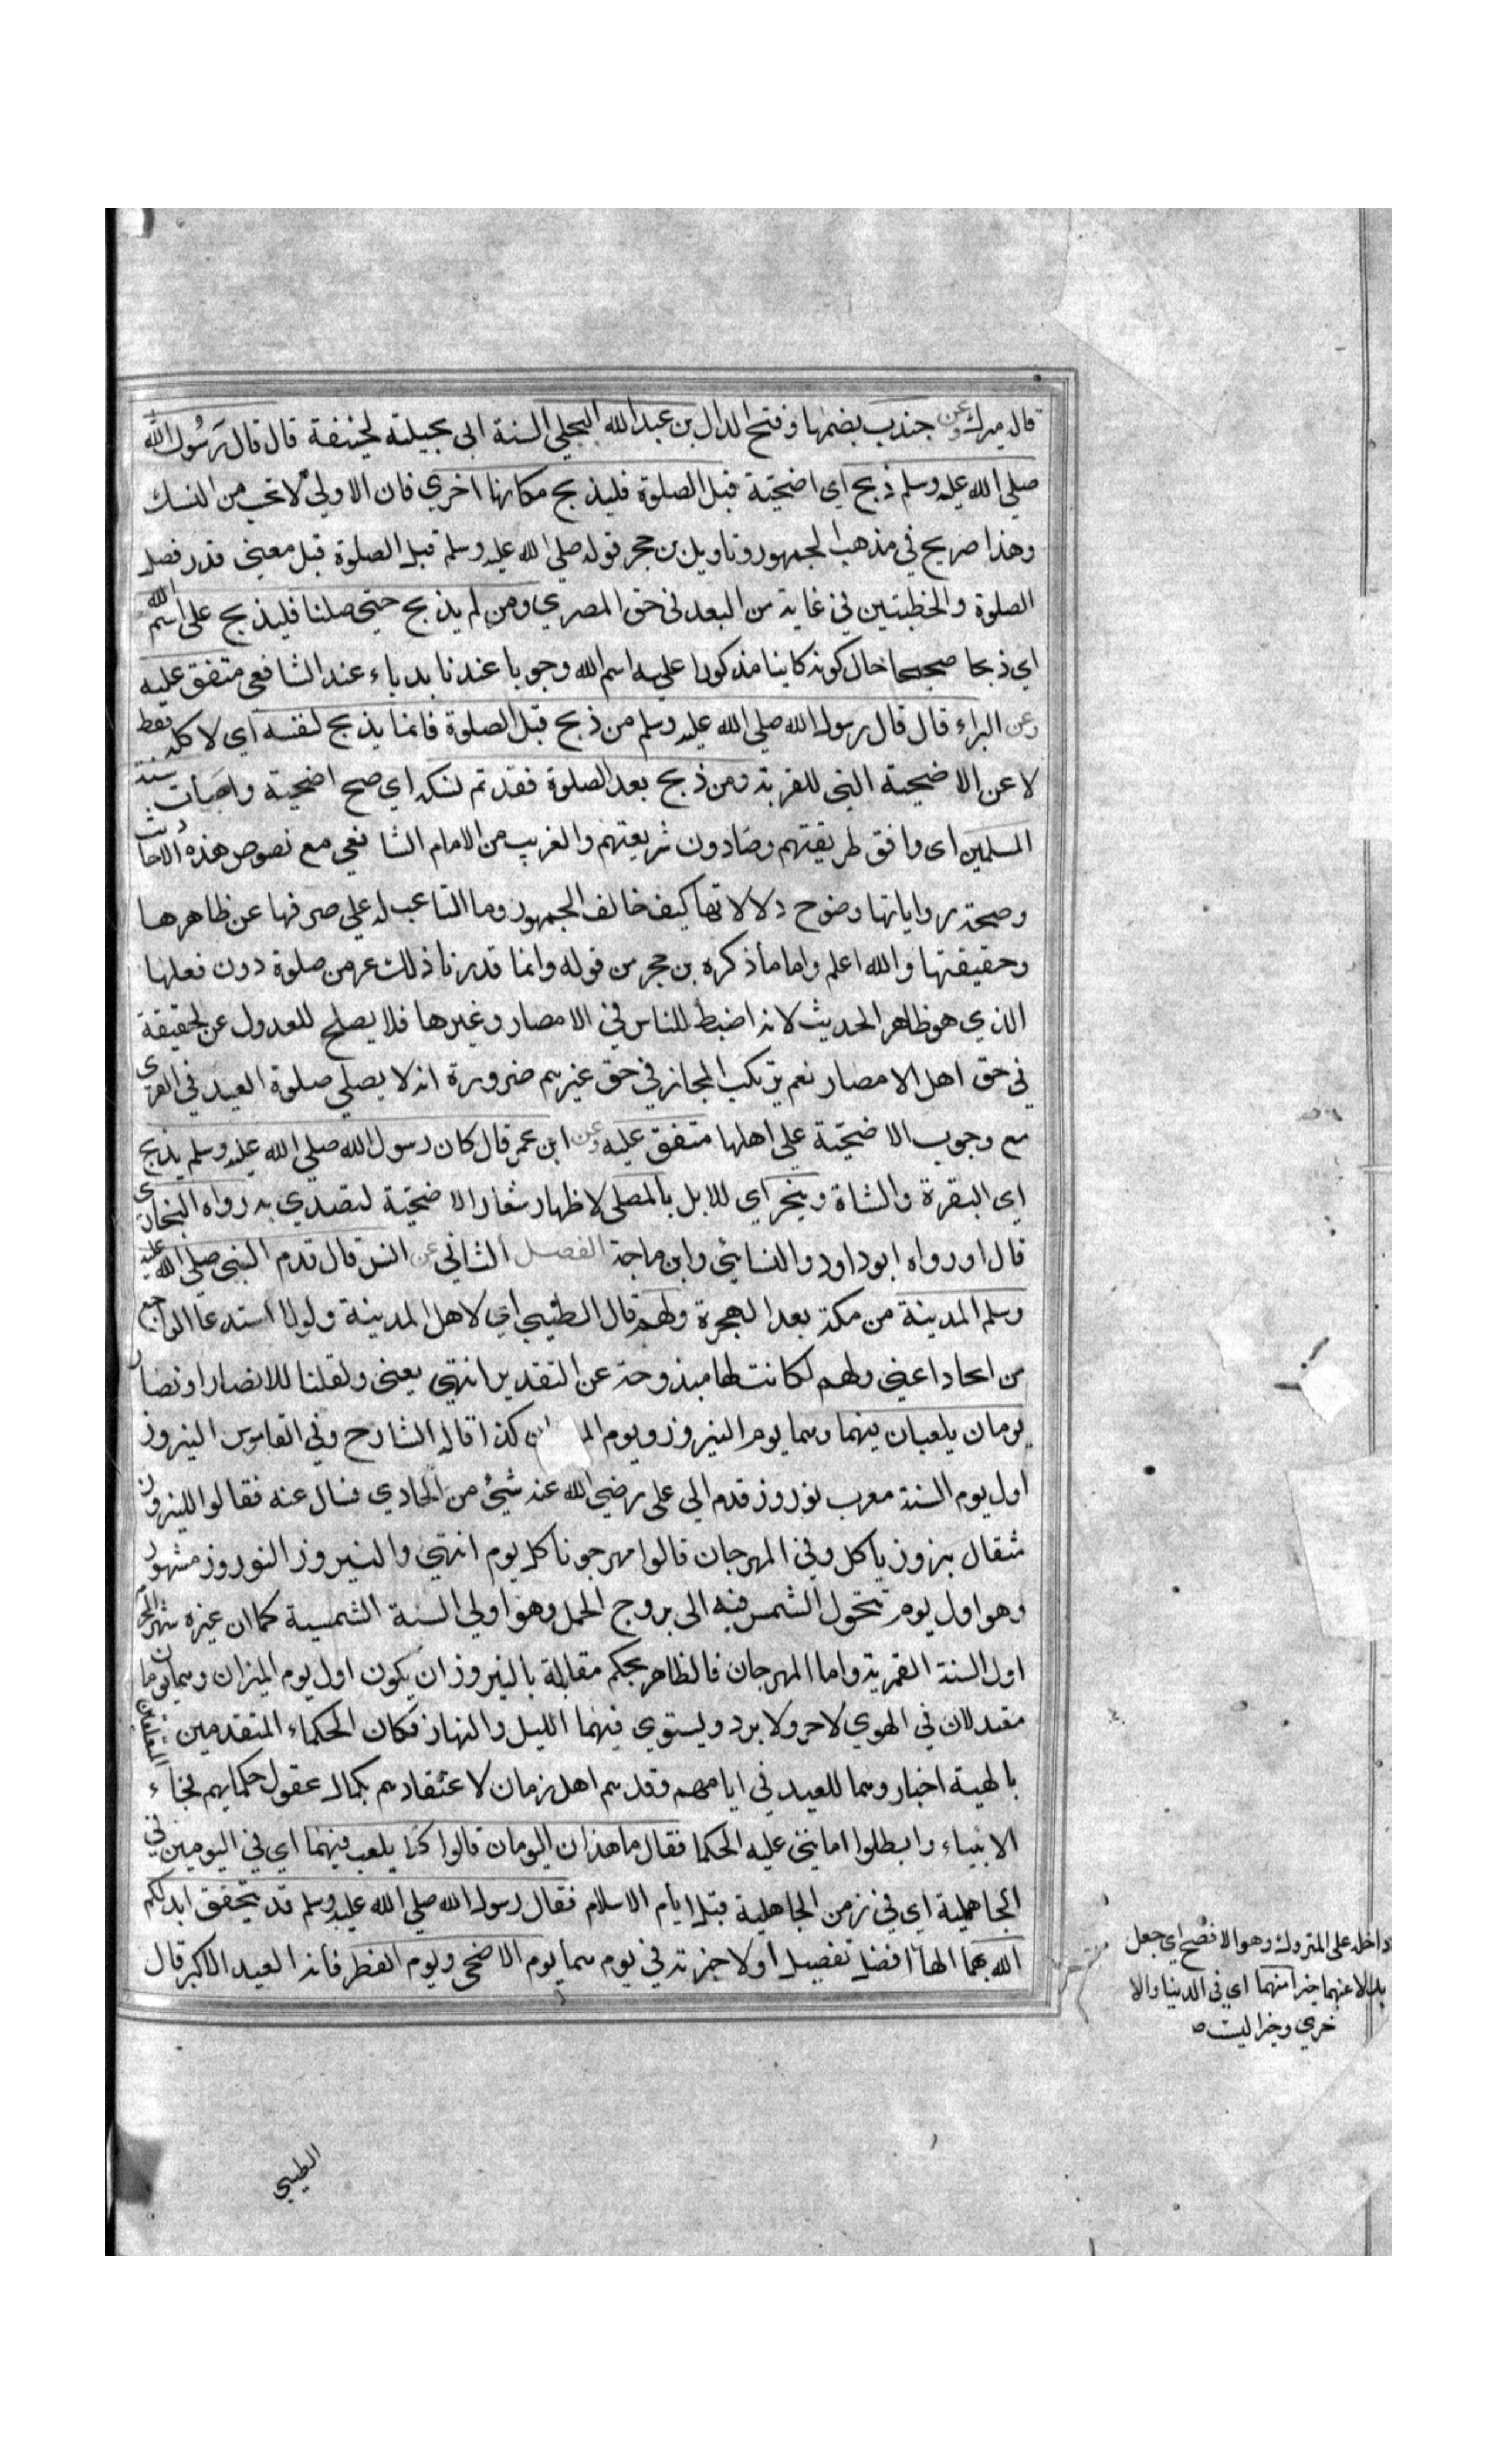 قال ميرك وعن جندب بضمها وفتح الدال بن عبد الله البجلي السنة الى بجيلته لحنيفة قال قال رسول الله
صلي الله عليه وسلم ذبح اي اضحية قبل الصلوة فليذبح مكانها اخري فان الاولي لا تحب من النسك
وهذا صريح في مذهب الجمهور وتاويل بن حجر قوله صلي الله عليه وسلم قبل الصلوة قبل معني قدر فصل
الصلوة والخطبتين في غاية من البعد في حق المصري ومن لم يذبح حتي صلنا فليذبح علي اسم الله
اي ذبحا صحيحا حال كونه كاينا مذكورا عليه اسم الله وجوبا عندنا بدباء عند الشافعي متفق عليه
وعن البراء قال قال رسول الله صلي الله عليه وسلم من ذبح قبل الصلوة فانما يذبح لنفسه اي لاكله فقط
لا عن الاضحية التي للقربة ومن ذبح بعد الصلوة فقد تم نسكه اي صح اضحية واصابت سنة
المسلمين اى وافق طريقتهم وصادون شريعتهم والغريب من الامام الشافعي مع نصوص هذه الاحاديث
وصحة رواياتها وضوح دلالاتها كيف خالف الجمهور وما التاعب له علي صرفها عن ظاهرها
وحقيقتها والله اعلم واما ماذكره بن حجر من قوله وانما قدرنا ذلك عرمن صلوة دون فعلها
الذي هو ظاهر الحديث لانه اضبط للناس في الامصار وغيرها فلا يصلح للعدول عن الحقيقة
في حق اهل الامصار نعم يرتكب المجاز في حق غيرهم ضرورة انه لا يصلي صلوة العيد في القري
مع وجوب الاضحية علي اهلها متفق عليه وعن ابن عمر قال كان رسول الله صلي الله عليه وسلم يذبح
اي البقرة والشاة وينحر اي للابل بالمصلي لاظهار شعار الاضحية لتصدي به رواه البخاري
قال او رواه ابو داود والنسائي وابن ماجة الفصل الثاني عن انس قال قدم النبي صلي الله عليه
وسلم المدينة من مكة بعد الهجرة ولهم قال الطيبي اي لاهل المدينة ولولا استدعا الراجع
من الحاد اعني ولهم لكانت لها مبذوحة عن التقدير انتهي يعني ولقلنا للانصار او نصار
يومان يلعبان ينهما وسما يوم النيروز ويوم كذا قاله الشارح وفي القاموس النيروز
اول يوم السنة معرب نوروز قدم الي علي رضي الله عنه شيئ من الحادي فسال عنه فقالوا للنيروز
ثقال بزوز ياكل وفي المهرجان قالوا مهرجونا كل يوم انتهي والنيروز النوروز مشهور
وهو اول يوم تتحول الشمس فيه الى بروج الحمل وهو اولي السنة الشمسية كما ان غيره شهر المحرم
اول السنة القمرية واما المهرجان فالظاهر بحكم مقابلة بالنيروز ان يكون اول يوم الميزان وسما يوما
مقبدلان في الهوي لا حر ولا برد ويستوي فيهما الليل والنهار فكان الحكماء المتقدمين
بالهيئة اخبار وسما للعيد في ايامهم وقلدهم اهل زمان لاعتقادهم بكمال عقول حكمايهم فجاء
الانبياء وابطلوا اما ينبني عليه الحكما فقال ما هذان اليومان قالوا كنا يلعب فيهما اي في اليومين في
الجاهلية اي في زمن الجاهلية قبل ايام الاسلام فقال رسول الله صلي الله عليه وسلم قد يتحقق ابدلكم
الله بهما الها افضل تفصيل اولا جزته في يوم سما يوم الاضحي ويوم الفطر فانه العيد الاكبر قال
داخله على المتروك وهو الافصح اي جعل
بدلا عنهما خيرا منهما اي في الدنيا والا
خري وخيرا ليت
الطيبي